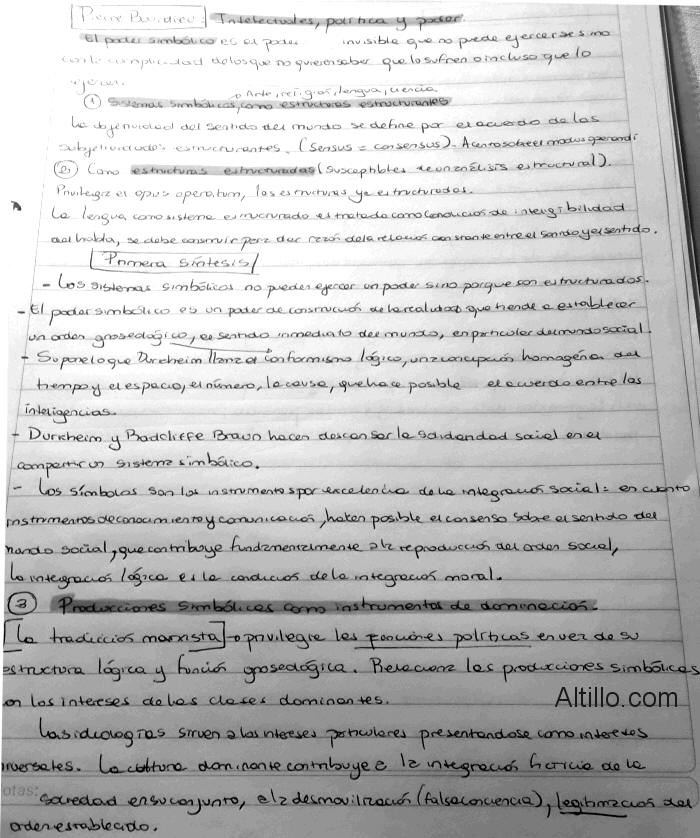 Pierre Bourdieu: Intelectuales, política y poder.
El poder simbólico es el poder invisible que no puede ejercerse sino
con la complicidad de los que no quieren saber que lo sufren o incluso que lo
ejercen.
→ Arte, religión, lengua, ciencia
① Sistemas simbólicos, como estructuras estructurantes
La objetividad del sentido del mundo se define por el acuerdo de las
subjetividades estructurantes. (Sensus = consensus). Acento sobre el modus operandi
② Como estructuras estructuradas (susceptibles de un análisis estructural).
Privilegia el opus operatum, las estructuras ya estructuradas.
La lengua como sistema estructurado es tratada como condición de inteligibilidad
del habla, se debe construir para dar razón de la relación constante entre el sonido y el sentido.
Primera síntesis
- Los sistemas simbólicos no pueden ejercer un poder sino porque son estructurados.
- El poder simbólico es un poder de construcción de la realidad que tiende a establecer
un orden gnoseológico, el sentido inmediato del mundo, en particular del mundo social.
- Supone lo que Durkheim llama el conformismo lógico, una concepción homogénea del
tiempo y el espacio, el número, la causa, que hace posible el acuerdo entre las
inteligencias.
- Durkheim y Radcliffe Braun hacen descansar la solidaridad social en el
compartir un sistema simbólico.
- Los símbolos son los instrumentos por excelencia de la integración social: en cuanto
instrumentos de conocimiento y comunicación, hacen posible el consenso sobre el sentido del
mundo social, que contribuye fundamentalmente a la reproducción del orden social,
la integración lógica es la condición de la integración moral.
③ Producciones simbólicas como instrumentos de dominación.
[La tradición marxista] → privilegia las funciones políticas en vez de su
estructura lógica y función gnoseológica. Relaciona las producciones simbólicas
con los intereses de las clases dominantes.
Altillo.com
Las ideologías sirven a los intereses particulares presentandose como intereses
universales. La cultura dominante contribuye a la integración ficticia de la
otas:
sociedad en su conjunto, a la desmovilización (falsa conciencia), legitimación del
orden establecido.